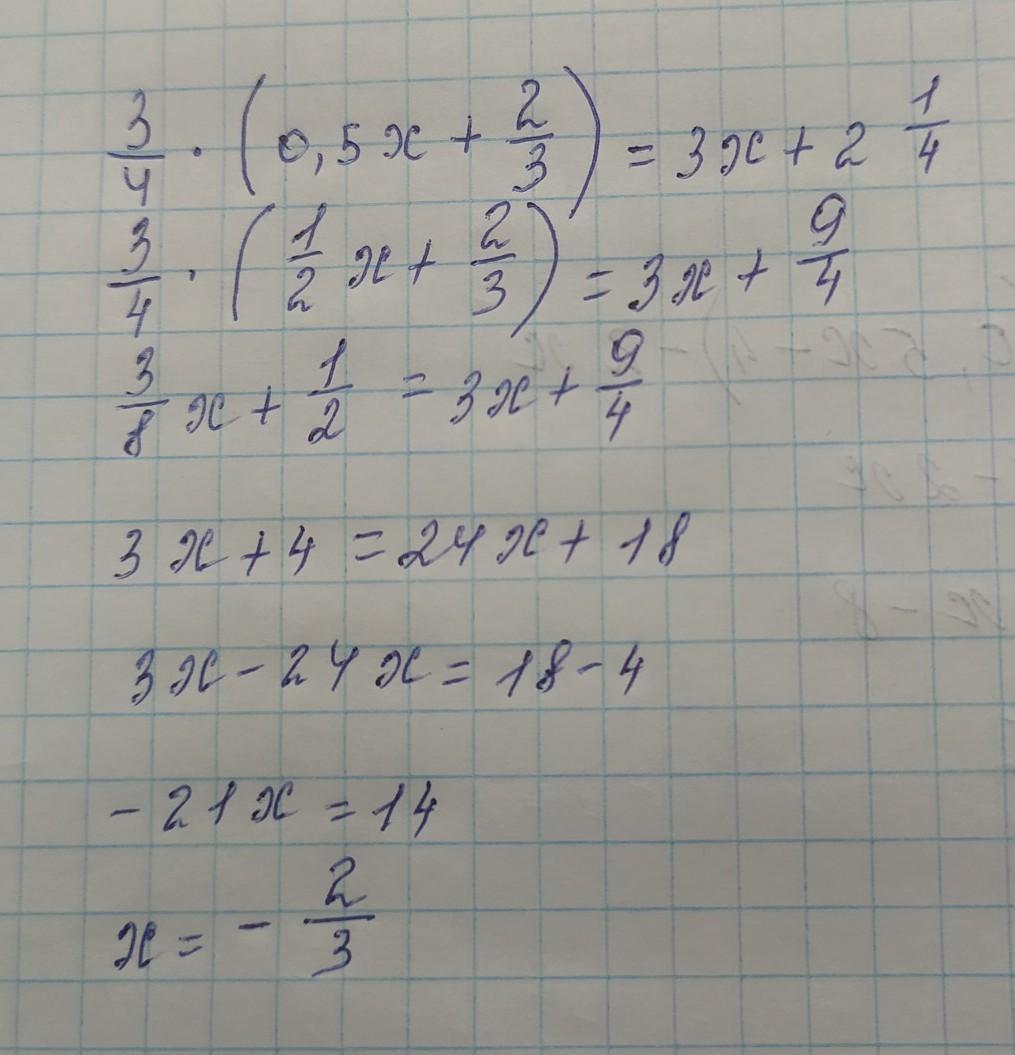 3/4 · (0,5x + 2/3) = 3x + 2 1/4
3/4 · (1/2 x + 2/3) = 3x + 9/4
3/8 x + 1/2 = 3x + 9/4
3x + 4 = 24x + 18
3x - 24x = 18 - 4
- 21x = 14
x = - 2/3